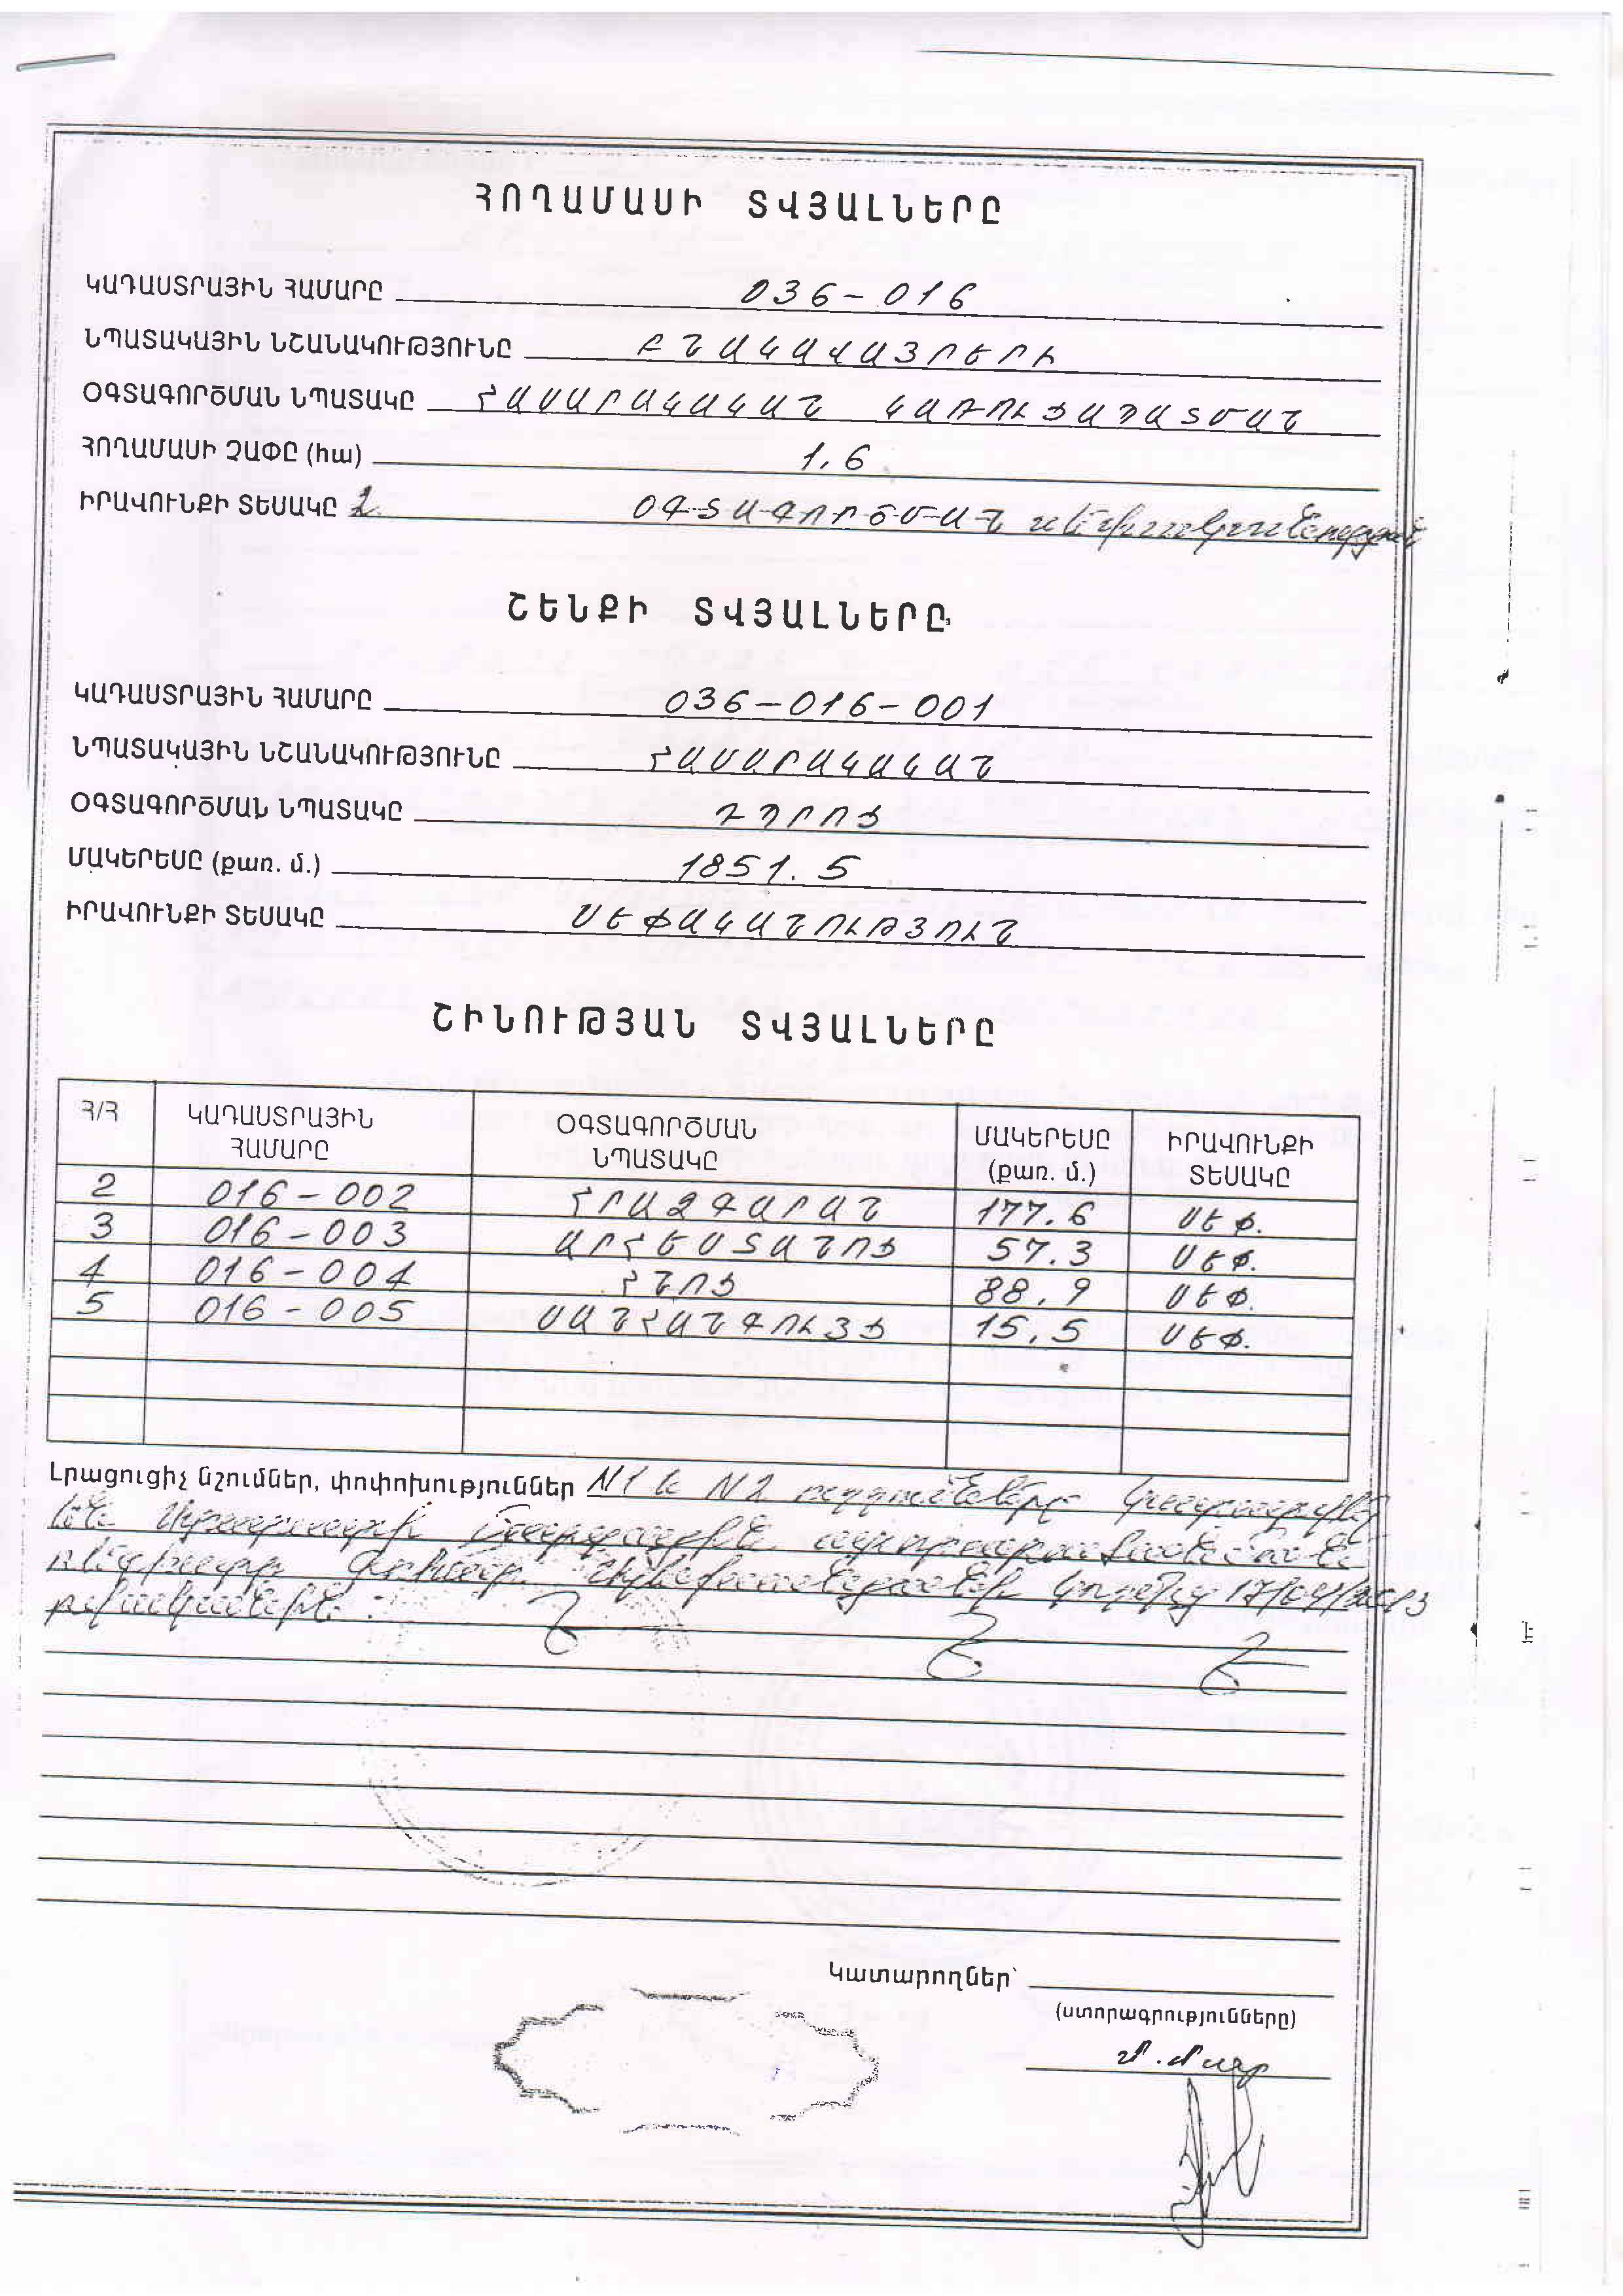 ՀՈՂԱՄԱՍԻ ՏՎՅԱԼՆԵՐԸ
ԿԱԴԱՍՏՐԱՅԻՆ ՀԱՄԱՐԸ 036-016
ՆՊԱՏԱԿԱՅԻՆ ՆՇԱՆԱԿՈՒԹՅՈՒՆԸ ԲՆԱԿԱՎԱՅՐԵՐԻ
ՕԳՏԱԳՈՐԾՄԱՆ ՆՊԱՏԱԿԸ ՀԱՍԱՐԱԿԱԿԱՆ ԿԱՌՈՒՑԱՊԱՏՄԱՆ
ՀՈՂԱՄԱՍԻ ՉԱՓԸ (հա) 1.6
ԻՐԱՎՈՒՆՔԻ ՏԵՍԱԿԸ ՕԳՏԱԳՈՐԾՄԱՆ սեփականության
ՇԵՆՔԻ ՏՎՅԱԼՆԵՐԸ
ԿԱԴԱՍՏՐԱՅԻՆ ՀԱՄԱՐԸ 036-016-001
ՆՊԱՏԱԿԱՅԻՆ ՆՇԱՆԱԿՈՒԹՅՈՒՆԸ ՀԱՍԱՐԱԿԱԿԱՆ
ՕԳՏԱԳՈՐԾՄԱՆ ՆՊԱՏԱԿԸ ԴՊՐՈՑ
ՄԱԿԵՐԵՍԸ (քառ. մ.) 1851.5
ԻՐԱՎՈՒՆՔԻ ՏԵՍԱԿԸ ՍԵՓԱԿԱՆՈՒԹՅՈՒՆ
ՇԻՆՈՒԹՅԱՆ ՏՎՅԱԼՆԵՐԸ
Հ/Հ ԿԱԴԱՍՏՐԱՅԻՆ ՀԱՄԱՐԸ ՕԳՏԱԳՈՐԾՄԱՆ ՆՊԱՏԱԿԸ ՄԱԿԵՐԵՍԸ (քառ. մ.) ԻՐԱՎՈՒՆՔԻ ՏԵՍԱԿԸ
2 016-002 ՀՐԱՁԳԱՐԱՆ 177.6 ՍԵՓ.
3 016-003 ԱՐՀԵՍՏԱՆՈՑ 57.3 ՍԵՓ.
4 016-004 ՀՆՈՑ 88.9 ՍԵՓ.
5 016-005 ՍԱՆՀԱՆԳՈՒՅՑ 15.5 ՍԵՓ.
Լրացուցիչ նշումներ, փոփոխություններ N1 և N2 ուղղումները կատարվել
են Արարատի մարզային ստորաբաժանման
կողմից
թվականին:
Կատարողներ՝
(ստորագրությունները)